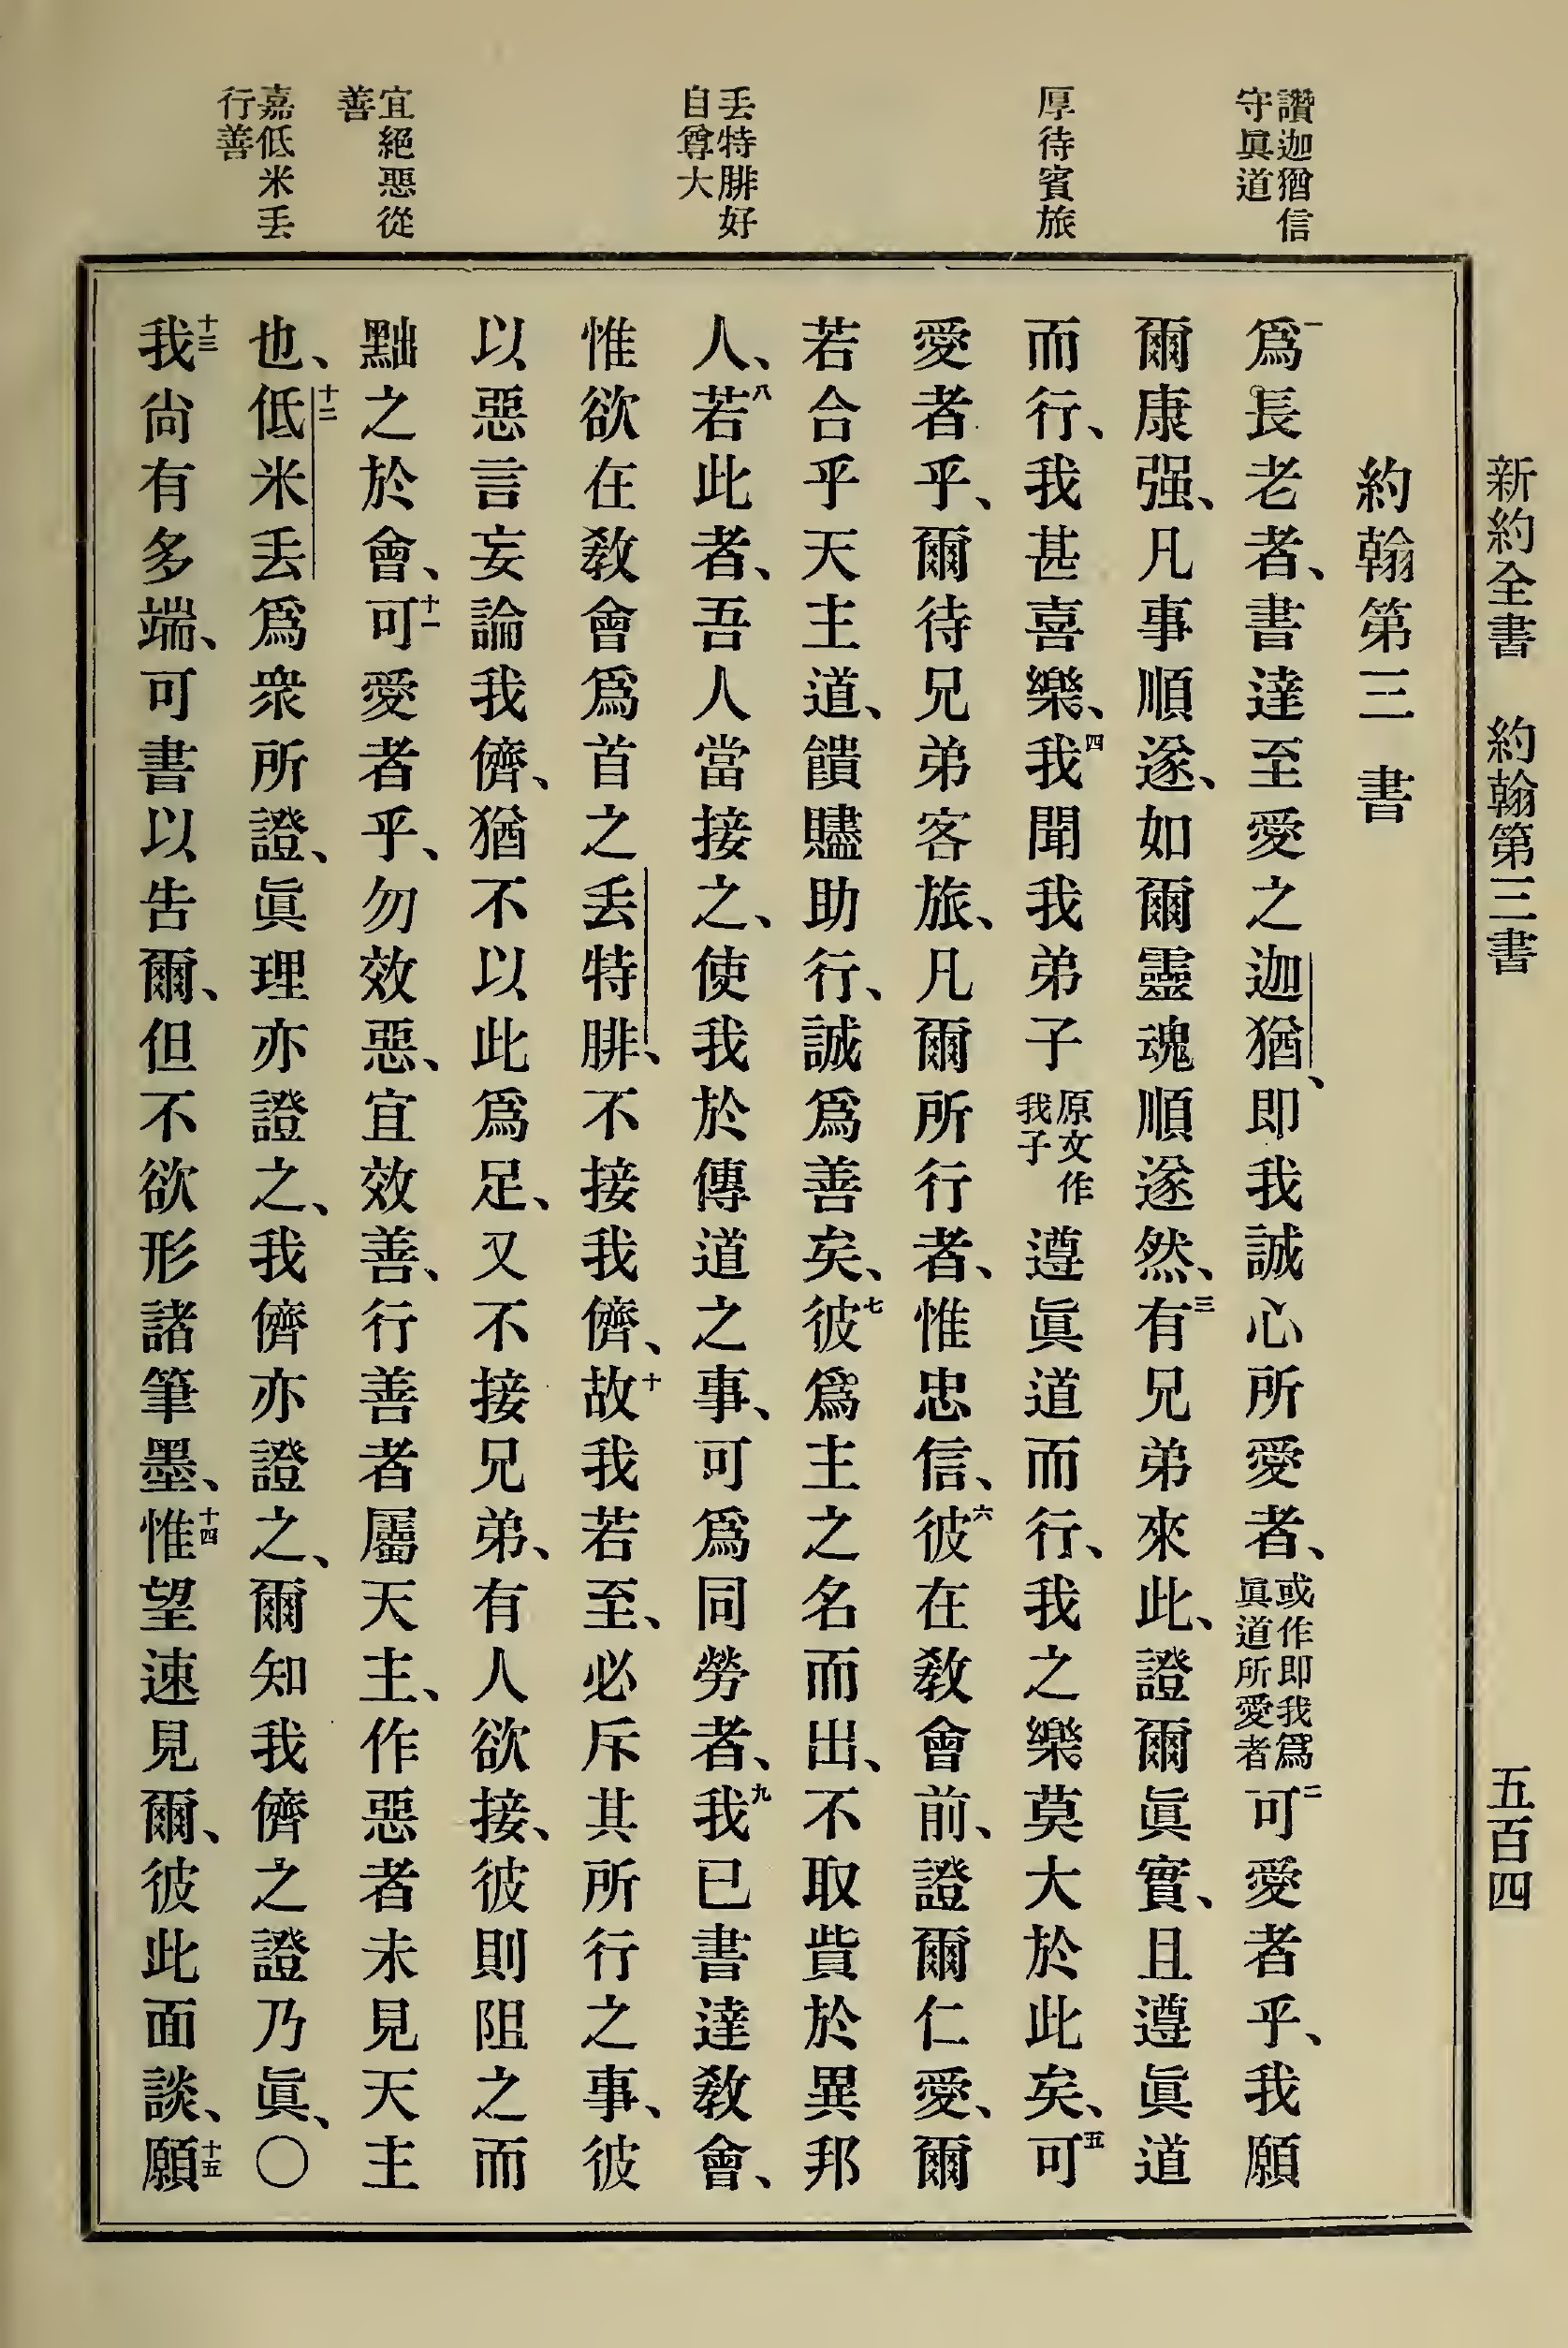 新約全書 約翰第三書 五百四
讚迦猶信
守眞道
厚待賓旅
丟特腓好
自尊大
宜絕惡從
善
嘉低米丟
行善
約翰第三書
一爲長老者、書達至愛之迦猶、即我誠心所愛者、或作即我爲眞道所愛者二可愛者乎、我願
爾康强、凡事順遂、如爾靈魂順遂然、三有兄弟來此、證爾眞實、且遵眞道
而行、我甚喜樂、四我聞我弟子原文作我子遵眞道而行、我之樂莫大於此矣、五可
愛者乎、爾待兄弟客旅、凡爾所行者、惟忠信、六彼在敎會前、證爾仁愛、爾
若合乎天主道、饋贐助行、誠爲善矣、七彼爲主之名而出、不取貲於異邦
人、八若此者、吾人當接之、使我於傳道之事、可爲同勞者、九我已書達敎會、
惟欲在敎會爲首之丟特腓、不接我儕、十故我若至、必斥其所行之事、彼
以惡言妄論我儕、猶不以此爲足、又不接兄弟、有人欲接、彼則阻之而
黜之於會、十一可愛者乎、勿效惡、宜效善、行善者屬天主、作惡者未見天主
也、十二低米丟爲衆所證、眞理亦證之、我儕亦證之、爾知我儕之證乃眞、〇
十三我尙有多端、可書以告爾、但不欲形諸筆墨、十四惟望速見爾、彼此面談、十五願